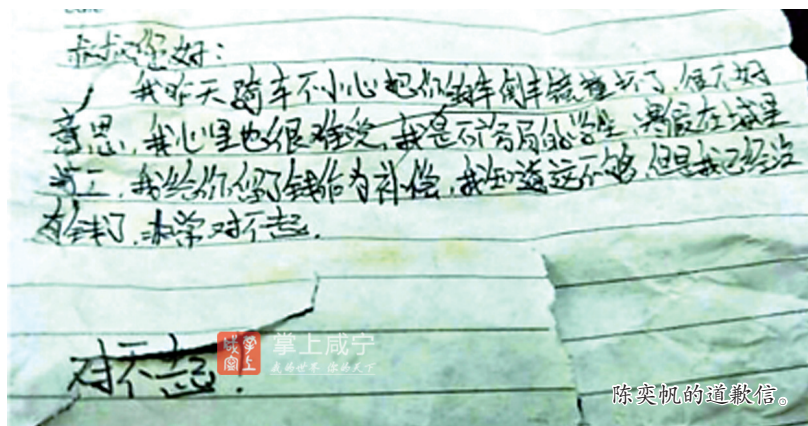 叔叔您好：
我昨天骑车不小心把你的车倒车镜撞坏了，很不好
意思，我心里也很难受，我是不高的学生，寒假在城里
打工，我给你留了钱作为补偿，我知道这不够，但是我已经没
有钱了，非常对不起。
对不起。
掌上咸宁
我的世界 你的天下
陈奕帆的道歉信。